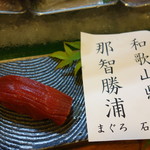 和歌山県
那智勝浦
まぐろ 石